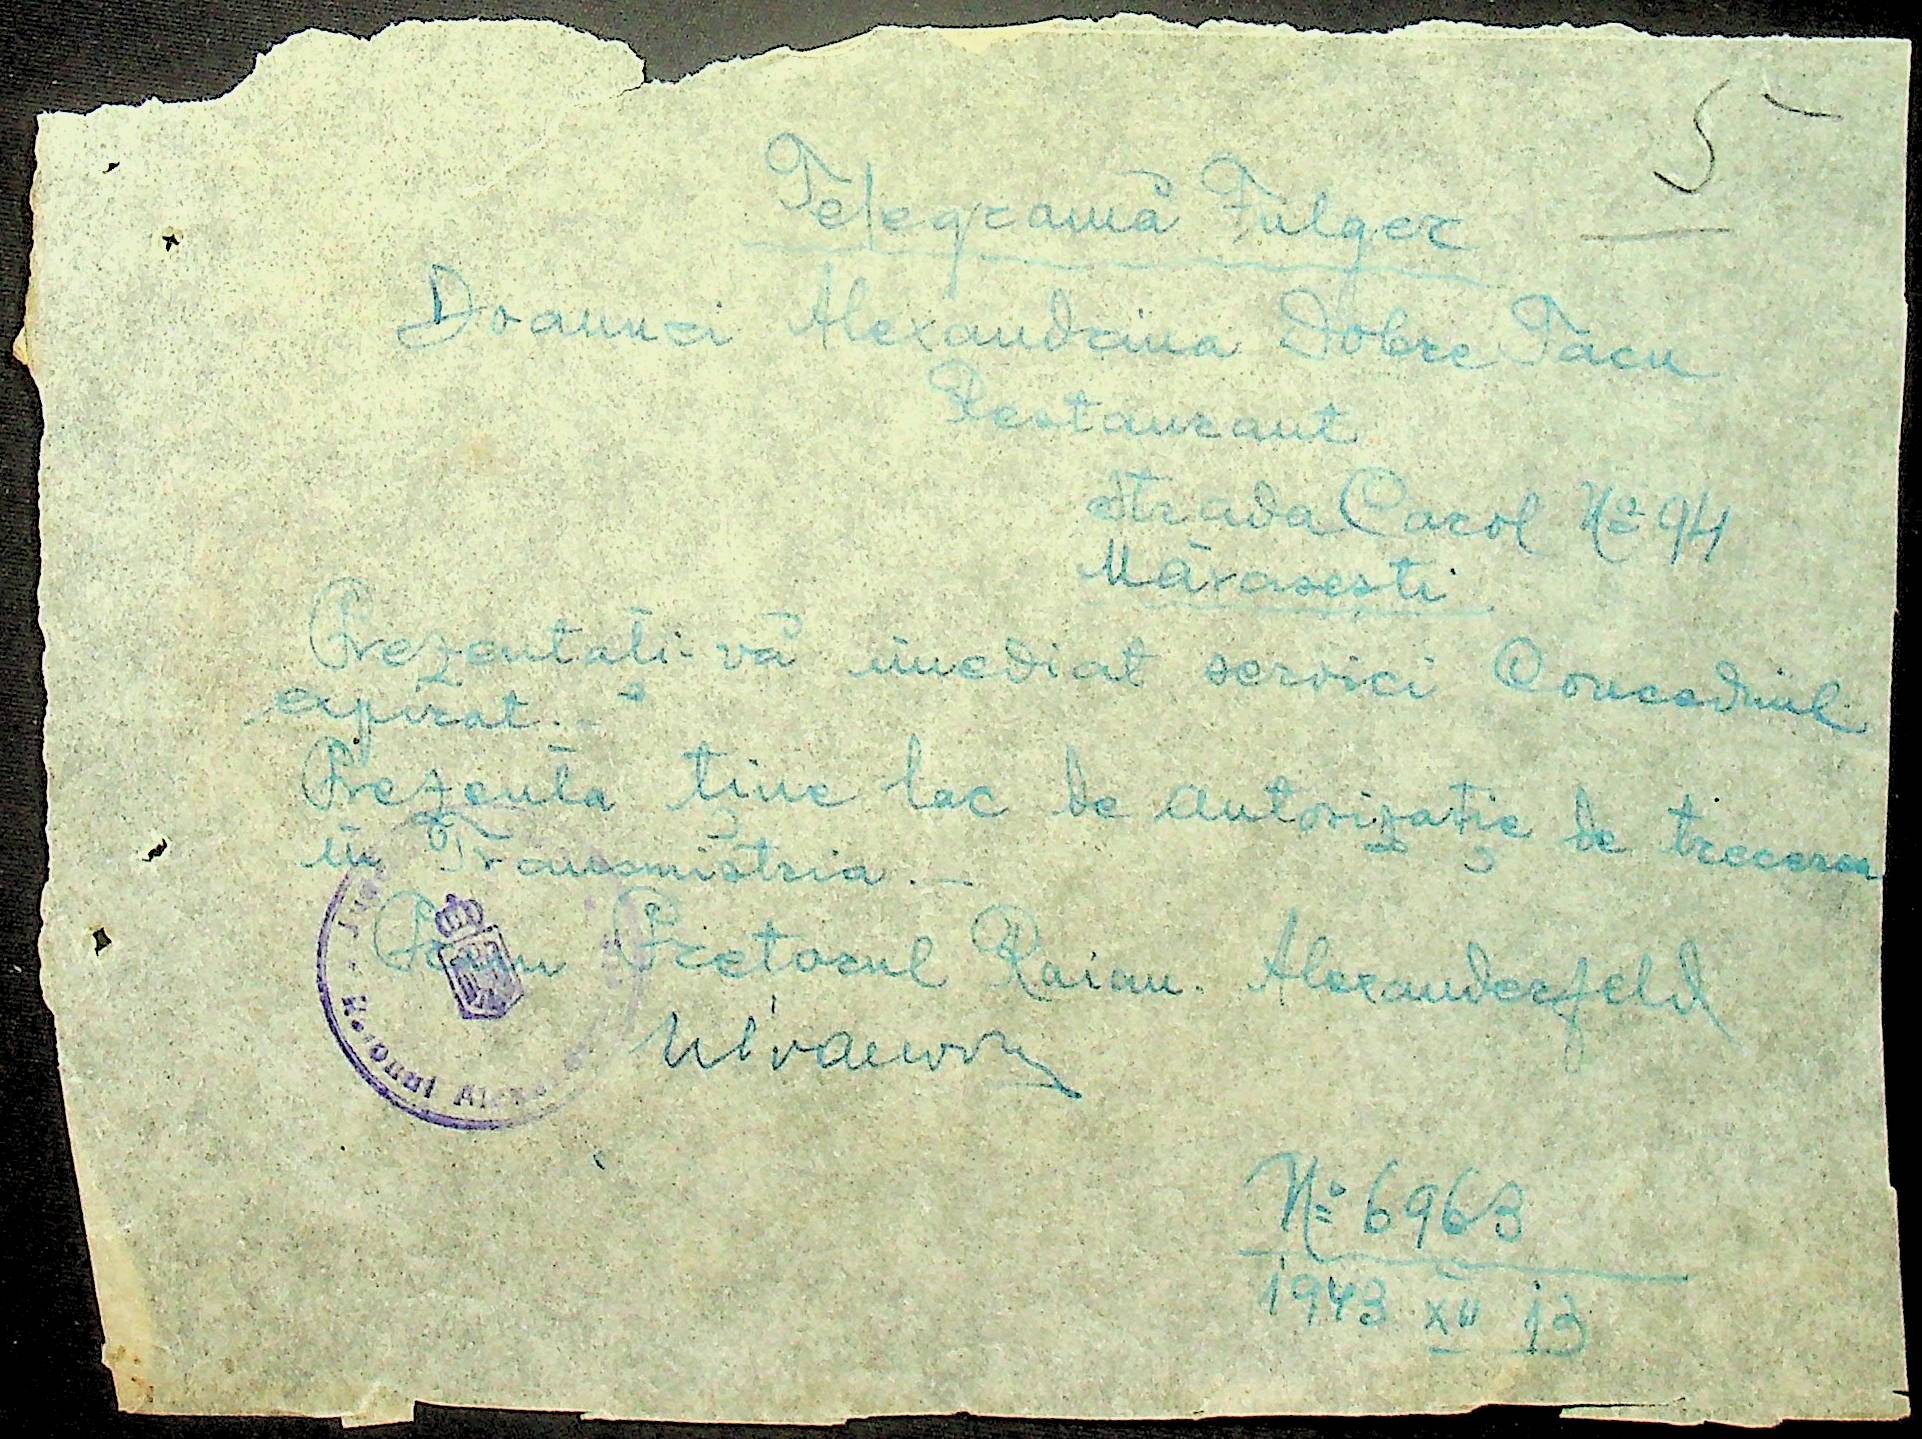 5
Telegramă Fulger
Doamnei Alexandrina Dobre Tacu
Restaurant
Strada Carol No 94
Mărasești
Prezentati-vă imediat servici Concediul
expirat.-
Prezenta tine loc de autorizație de trecerea
în Transnistria.-
Pretorul Raion. Alexanderfeld
No 6963
1943 XII 13